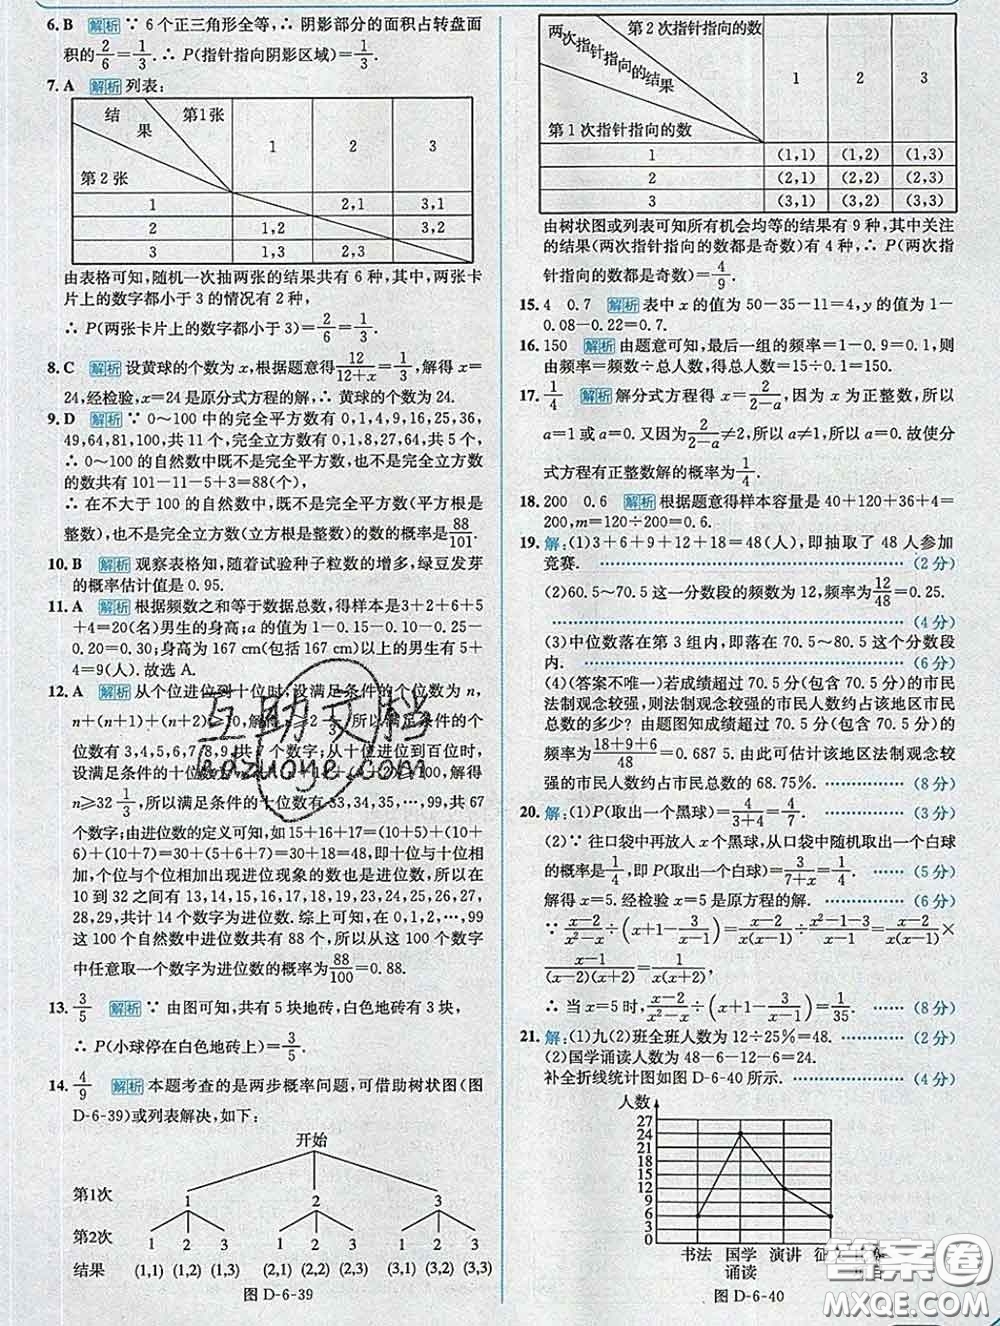 6. B 解析 ∵ 6 个正三角形全等,∴ 阴影部分的面积占转盘面
积的2/6=1/3.∴ P(指针指向阴影区域)=1/3.
7. A 解析 列表:
结果 第1张 第2张 1 2 3
1 2,1 3,1
2 1,2 3,2
3 1,3 2,3
由表格可知,随机一次抽两张的结果共有 6 种,其中,两张卡
片上的数字都小于 3 的情况有 2 种,
∴ P(两张卡片上的数字都小于 3)=2/6=1/3.
8. C 解析 设黄球的个数为 x,根据题意得12/(12+x)=1/3,解得 x=
24,经检验,x=24 是原分式方程的解,∴ 黄球的个数为 24.
9. D 解析 ∵ 0～100 中的完全平方数有 0,1,4,9,16,25,36,
49,64,81,100,共 11 个,完全立方数有 0,1,8,27,64,共 5 个,
∴ 0～100 的自然数中既不是完全平方数,也不是完全立方数
的数共有 101-11-5+3=88(个),
∴ 在不大于 100 的自然数中,既不是完全平方数(平方根是
整数),也不是完全立方数(立方根是整数)的数的概率是88/101.
10. B 解析 观察表格知,随着试验种子粒数的增多,绿豆发芽
的概率估计值是 0.95.
11. A 解析 根据频数之和等于数据总数,得样本是3+2+6+5
+4=20(名)男生的身高;a 的值为 1-0.15-0.10-0.25-
0.20=0.30;身高为 167 cm(包括 167 cm)以上的男生有 5+
4=9(人).故选 A.
12. A 解析 从个位进位到十位时,设满足条件的个位数为 n,
n+(n+1)+(n+2)≥10,解得n≥2 1/3,所以满足条件的个
位数有 3,4,5,6,7,8,9,共 7 个数字;从十位进位到百位时,
设满足条件的十位数为 n,n+n+n+1≥100,解得
n≥32 1/3,所以满足条件的十位数有 33,34,35,…,99,共 67
个数字;由进位数的定义可知,如 15+16+17=(10+5)+(10+
6)+(10+7)=30+(5+6+7)=30+18=48,即十位与十位相
加、个位与个位相加出现进位现象的数也是进位数,所以在
10 到 32 之间有 13,14,15,16,17,18,19,23,24,25,26,27,
28,29,共计 14 个数字为进位数.综上可知,在 0,1,2,…,99
这 100 个自然数中进位数共有 88 个,所以从这 100 个数字
中任意取一个数字为进位数的概率为88/100=0.88.
13. 3/5 解析 ∵ 由图可知,共有 5 块地砖,白色地砖有 3 块,
∴ P(小球停在白色地砖上)=3/5.
14. 4/9 解析 本题考查的是两步概率问题,可借助树状图(图
D-6-39)或列表解决,如下:
开始
第1次 1 2 3
第2次 1 2 3 1 2 3 1 2 3
结果 (1,1) (1,2) (1,3) (2,1) (2,2) (2,3) (3,1) (3,2) (3,3)
图 D-6-39
两次指针指向的结果 第 2 次指针指向的数 第 1 次指针指向的数 1 2 3
1 (1,1) (1,2) (1,3)
2 (2,1) (2,2) (2,3)
3 (3,1) (3,2) (3,3)
由树状图或列表可知所有机会均等的结果有 9 种,其中关注
的结果(两次指针指向的数都是奇数)有 4 种,∴ P(两次指
针指向的数都是奇数)=4/9.
15. 4 0.7 解析 表中 x 的值为 50-35-11=4,y 的值为 1-
0.08-0.22=0.7.
16. 150 解析 由题意可知,最后一组的频率=1-0.9=0.1,则
由频率=频数÷总人数,得总人数=15÷0.1=150.
17. 1/4 解析 解分式方程得 x=2/(2-a),因为 x 为正整数,所以
a=1 或 a=0.又因为2/(2-a)≠2,所以 a≠1,所以 a=0.故使分
式方程有正整数解的概率为1/4.
18. 200 0.6 解析 根据题意得样本容量是 40+120+36+4=
200,m=120÷200=0.6.
19. 解:(1)3+6+9+12+18=48(人),即抽取了 48 人参加
竞赛. (2 分)
(2)60.5～70.5 这一分数段的频数为 12,频率为12/48=0.25.
(4 分)
(3)中位数落在第 3 组内,即落在 70.5～80.5 这个分数段
内. (6 分)
(4)(答案不唯一)若成绩超过 70.5 分(包含 70.5 分)的市民
法制观念较强,则法制观念较强的市民人数约占该地区市民
总数的多少? 由题图知成绩超过 70.5 分(包含 70.5 分)的
频率为(18+9+6)/48=0.687 5.由此可估计该地区法制观念较
强的市民人数约占市民总数的 68.75%. (8 分)
20. 解:(1)P(取出一个黑球)=4/(3+4)=4/7. (3 分)
(2)∵ 往口袋中再放入 x 个黑球,从口袋中随机取出一个白球
的概率是1/4,即 P(取出一个白球)=3/(7+x)=1/4. (5 分)
解得 x=5.经检验 x=5 是原方程的解. (6 分)
∵ (x-2)/(x²-x)÷(x+1-3/(x-1))=(x-2)/(x(x-1))÷(x²-1-3)/(x-1)=(x-2)/(x(x-1))×
(x-1)/((x-2)(x+2))=1/(x(x+2)),
∴ 当 x=5 时,(x-2)/(x²-x)÷(x+1-3/(x-1))=1/35. (8 分)
21. 解:(1)九(2)班全班人数为 12÷25%=48. (2 分)
(2)国学诵读人数为 48-6-12-6=24.
补全折线统计图如图 D-6-40 所示. (4 分)
人数
27
24
21
18
15
12
9
6
3
0
书法 国学诵读 演讲 征
图 D-6-40
互助文档
hdzuoye.com
答案圈
MXQE.COM